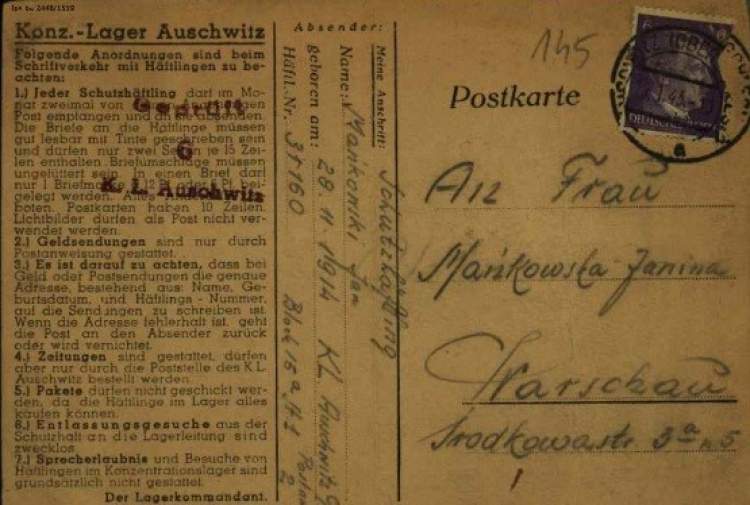 Konz.-Lager Auschwitz
Folgende Anordnungen sind beim
Schriftverkehr mit Häftlingen zu be-
achten:
1.) Jeder Schutzhäftling darf im Mo-
nat zweimal von
Post empfangen und an sie absenden.
Die Briefe an die Häftlinge müssen
gut lesbar mit Tinte geschrieben sein
und dürfen nur zwei Seiten 15 Zei-
len enthalten. Briefumschläge müssen
ungefüttert sein. In einen Brief darf
nur 1 Briefmarke 12 bei-
gelegt werden. Alles
boten. Postkarten haben 10 Zeilen.
Lichtbilder dürfen als Post nicht ver-
wendet werden.
2.) Geldsendungen sind nur durch
Postanweisung gestattet.
3.) Es ist darauf zu achten, dass bei
Geld oder Postsendungen die genaue
Adresse, bestehend aus: Name, Ge-
burtsdatum, und Häftlings - Nummer,
auf die Sendungen zu schreiben ist.
Wenn die Adresse fehlerhaft ist, geht
die Post an den Absender zurück
oder wird vernichtet.
4.) Zeitungen sind gestattet, dürfen
aber nur durch die Poststelle des K.L.
Auschwitz bestellt werden.
5.) Pakete dürfen nicht geschickt wer-
den, da die Häftlinge im Lager alles
kaufen können.
6.) Entlassungsgesuche aus der
Schutzhaft an die Lagerleitung sind
zwecklos
7.) Sprecherlaubnis und Besuche von
Häftlingen im Konzentrationslager sind
grundsätzlich nicht gestattet.
Der Lagerkommandant.
Geprüft
6
K. L. Auschwitz
Absender:
Meine Anschrift: Schutzhäftling
Name: Jan
geboren am: 28. 11. 1914 KL. Auschwitz
Häftl.-Nr. 31160 Block 15a
145
Postkarte
6
An Frau
Mańkowska Janina
Warschau
Srodkowastr 3a